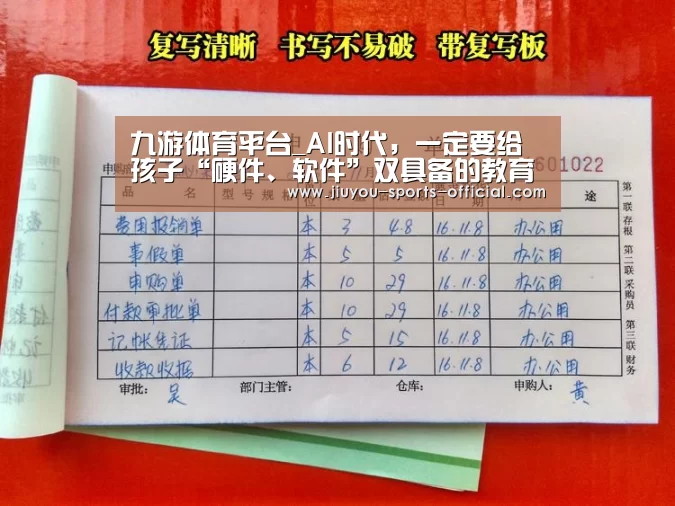 复写清晰 书写不易破 带复写板
九游体育平台_AI时代，一定要给
孩子“硬件、软件”双具备的教育
www.jiuyou-sports-official.com
申购
601022
品 名 型号规格 位 日 期 途
费用报销单 本 3 4.8 16.11.8 办公用
事假单 本 5 5 16.11.8 办公用
申购单 本 10 29 16.11.8 办公用
付款审批单 本 10 29 16.11.8 办公用
记帐凭证 本 5 15 16.11.8 办公用
收款收据 本 6 12 16.11.8 办公用
审批： 吴 部门主管： 仓库： 申购人： 黄
第一联 存根
第二联 采购员
第三联 财务